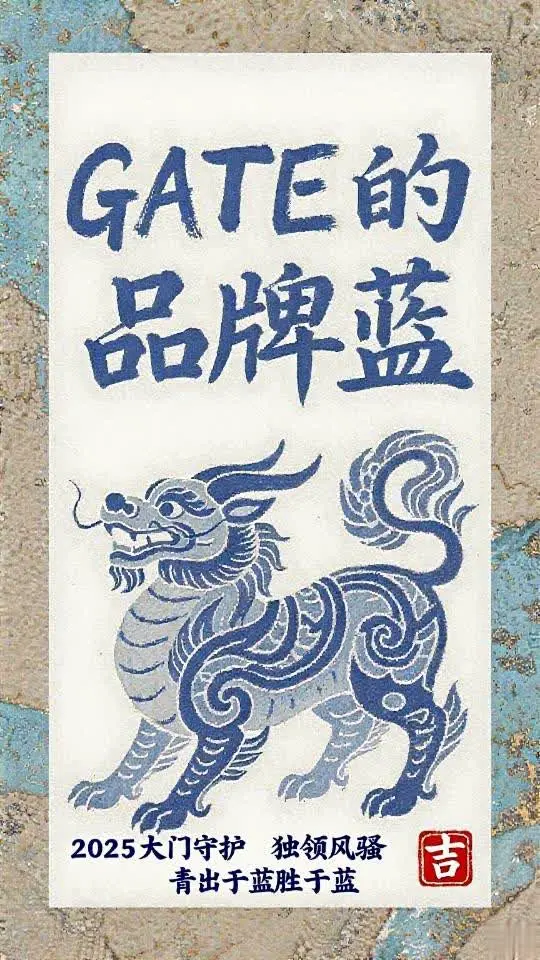 GATE的
品牌蓝
2025大门守护 独领风骚
青出于蓝胜于蓝
吉